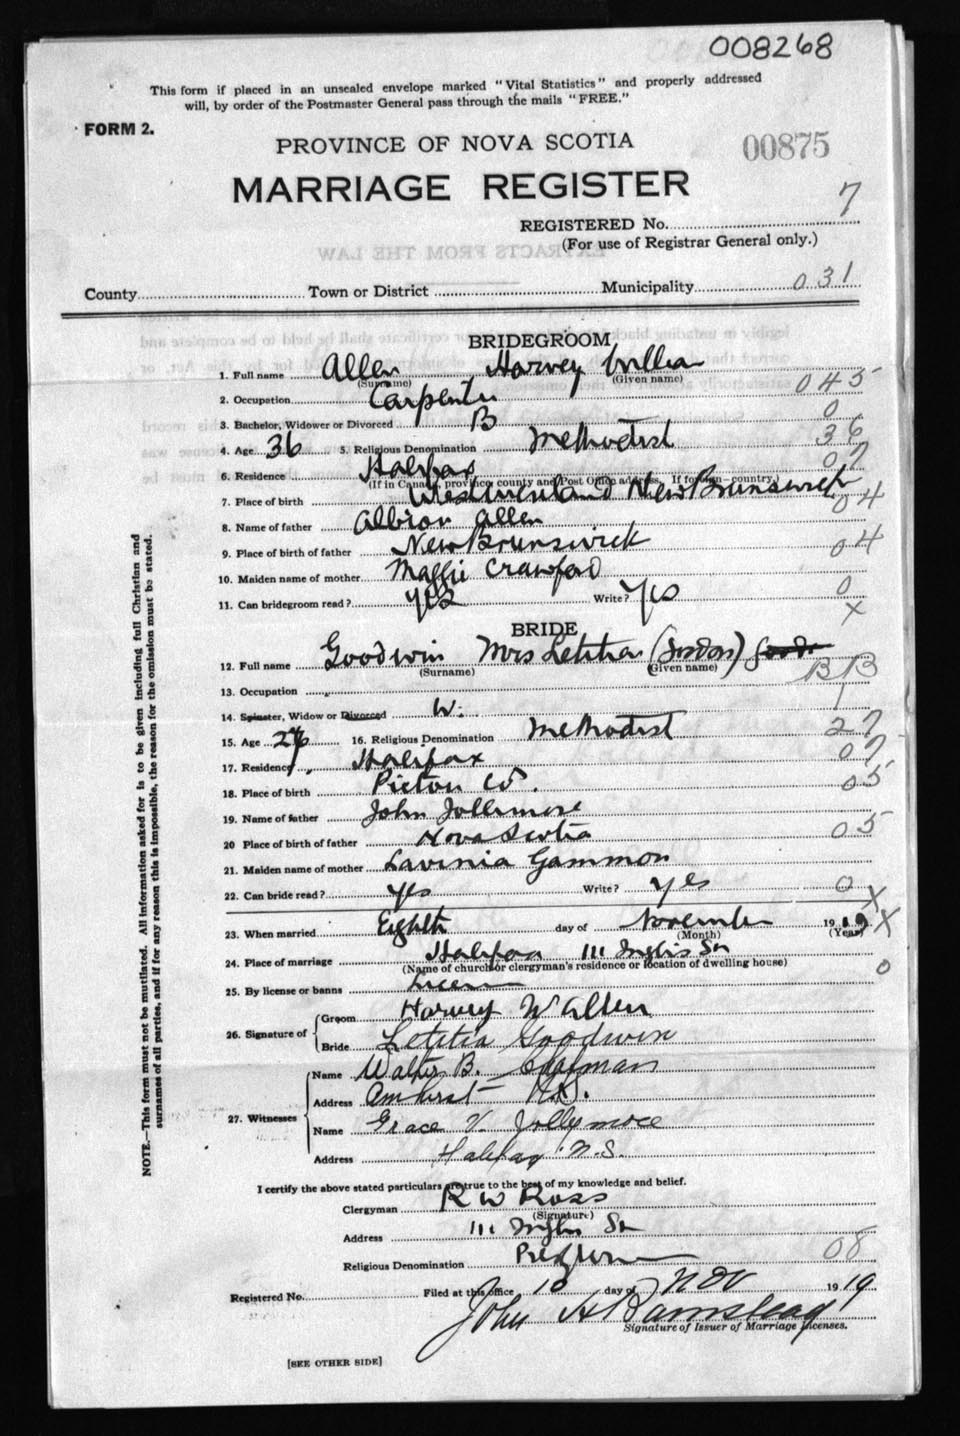 008268
This form if placed in an unsealed envelope marked "Vital Statistics" and properly addressed
will, by order of the Postmaster General pass through the mails "FREE."
FORM 2.
PROVINCE OF NOVA SCOTIA
00875
MARRIAGE REGISTER
7
REGISTERED No.
(For use of Registrar General only.)
EXTRACTS FROM THE LAW
County Town or District Municipality 031
BRIDEGROOM
1. Full name Allen Harvey William
(Surname) (Given name)
2. Occupation Carpenter 045
3. Bachelor, Widower or Divorced B 0
4. Age 36 5. Religious Denomination Methodist 36
6. Residence Halifax 07
(If in Canada, province county and Post Office address. If foreign—country.)
7. Place of birth Westmoreland New Brunswick 04
8. Name of father Albion Allen
9. Place of birth of father New Brunswick 04
10. Maiden name of mother Maggie Crawford
11. Can bridegroom read? yes Write? Yes 0
X
BRIDE
12. Full name Goodwin Mrs Letitia
(Surname) (Given name)
13. Occupation
14. Spinster, Widow or Divorced W. 1
15. Age 26 16. Religious Denomination Methodist 27
17. Residence Halifax 07
18. Place of birth Pictou Co. 05
19. Name of father John Jollimore
20 Place of birth of father Nova Scotia 05
21. Maiden name of mother Lavinia Gammon
22. Can bride read? yes Write? yes 0
X
23. When married Eighth day of November 1919 X
(Month) (Year)
24. Place of marriage Halifax 111 Inglis St
(Name of church or clergyman's residence or location of dwelling house) 0
25. By license or banns License
26. Signature of
Groom Harvey W Allen
Bride Letitia Goodwin
27. Witnesses
Name Walter B. Chapman
Address Amherst N.S.
Name Grace V. Jollymore
Address Halifax N.S.
I certify the above stated particulars are true to the best of my knowledge and belief.
Clergyman R W Ross
(Signature)
Address 111 Inglis St
Religious Denomination Presbyterian 08
Registered No. Filed at this office 10 day of Nov 1919
John A Barnstead
Signature of Issuer of Marriage Licenses.
[SEE OTHER SIDE]
NOTE.—This form must not be mutilated. All information asked for is to be given including full Christian and
surnames of all parties, and if for any reason this is impossible, the reason for the omission must be stated.